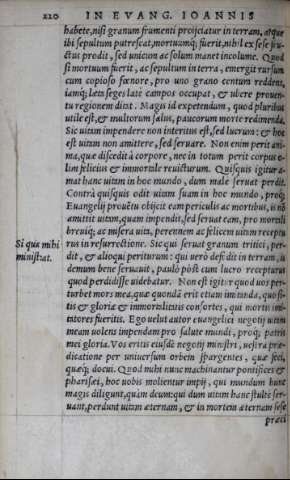 220 IN EVANG. IOANNIS
habete, nisi granum frumenti proijciatur in terram, atque
ibi sepultum putrescat, mortuumq; fuerit, nihil ex sese fru-
ctus prodit, sed unicum ac solum manet incolume. Quod
si mortuum fuerit, ac sepultum in terra, emergit rursum
cum copioso fœnore, pro uno grano centum reddens,
iamq; læta seges late campos occupat, & ubere prouen-
tu regionem ditat. Magis id expetendum, quod pluribus
utile est, & multorum salus, paucorum morte redimenda.
Sic uitam impendere non interitus est, sed lucrum: & hoc
est uitam non amittere, sed seruare. Non enim perit ani-
ma, quæ discedit à corpore, nec in totum perit corpus o-
lim felicius & immortale reuicturum. Quisquis igitur a-
mat hanc uitam in hoc mundo, dum male seruat perdit.
Contrà quisquis odit uitam suam in hoc mundo, proq;
Euangelij prouectu obijcit eam periculis ac mortibus, is nõ
amittit uitam, quam impendit, sed seruat eam, pro mortali
breuiq; ac misera uita, perennem ac felicem uitam receptu
Si quis mihi
ministrat.
rus in resurrectione. Sic qui seruat granum tritici, per-
dit, & alioqui periturum: qui uerò defodit in terram, is
demum bene seruauit, paulò pòst cum lucro recepturus
quod perdidisse uidebatur. Non est igitur quod uos per-
turbet mors mea, quæ quondã erit etiam imitanda, quo si-
tis & gloriæ & immortalitatis consortes, qui mortis imi-
tatores fueritis. Ego uelut autor euangelici negotij uitam
meam uolens impendam pro salute mundi, proq; patris
mei gloria. Vos eritis eiusdẽ negotij ministri, uestra præ-
dicatione per uniuersum orbem spargentes, quæ feci,
quæq; docui. Quod mihi nunc machinantur pontifices &
pharisæi, hoc uobis molientur impij, qui mundum hunc
magis diligunt, quàm deum: qui dum uitam hanc stultè ser-
uant, perdunt uitam æternam, & in mortem æternam sese
præci